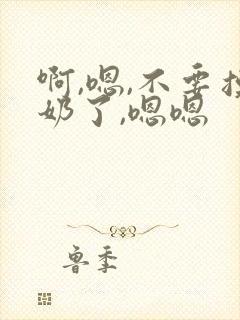 啊,嗯,不要
奶了,嗯嗯
鲁季